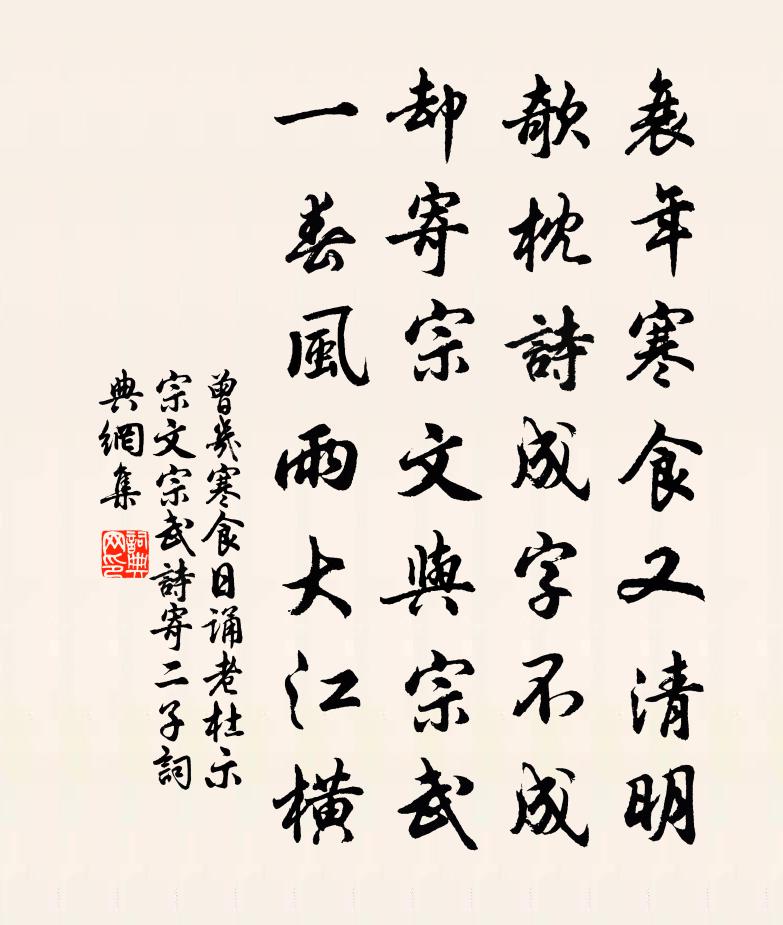 衰年寒食又清明
欹枕詩成字不成
却寄宗文與宗武
一春風雨大江橫
曾幾寒食日誦老杜示
宗文宗武詩寄二子詞
典網集
詞典
网印